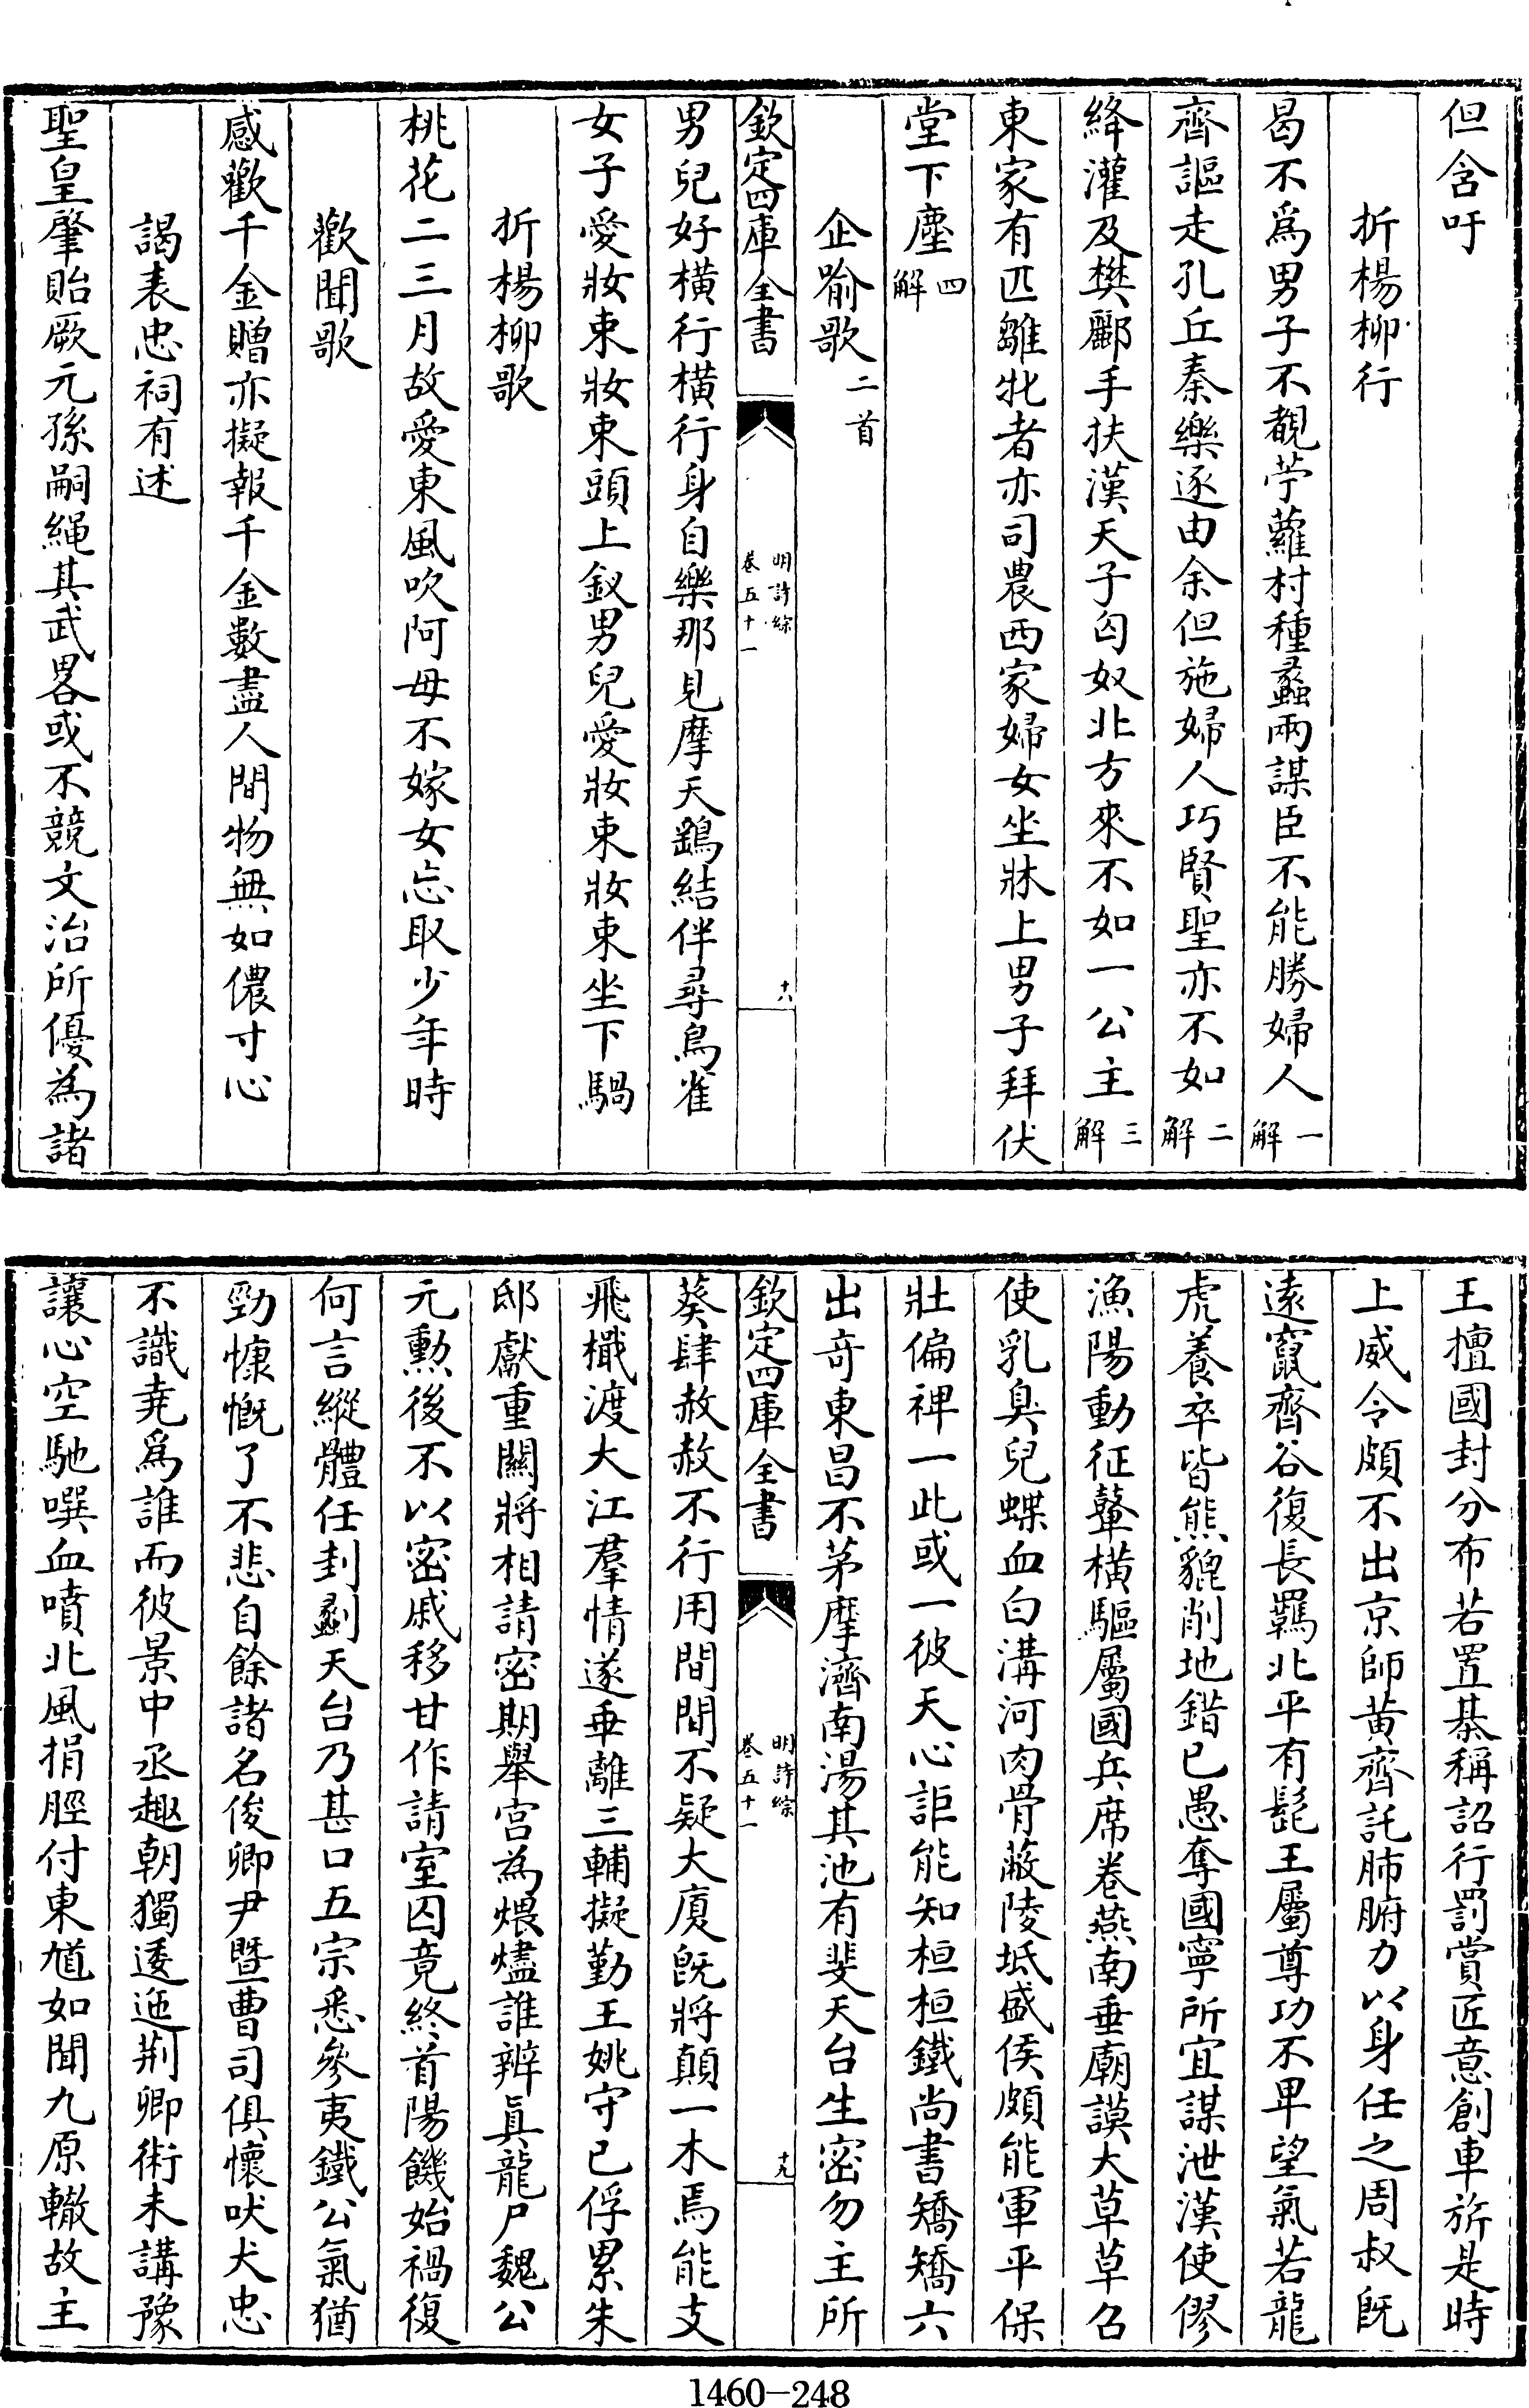 但含吁
折楊柳行
曷不爲男子不覩苧蘿村種蠡兩謀臣不能勝婦人一解
齊謳走孔丘秦樂逐由余但施婦人巧賢聖亦不如二解
絳灌及樊酈手扶漢天子匈奴北方來不如一公主三解
東家有匹雛牝者亦司農西家婦女坐牀上男子拜伏
堂下塵四解
企喻歌二首
欽定四庫全書
明詩綜
卷五十一
十八
男兒好橫行橫行身自樂那見摩天鷂結伴尋鳥雀
女子愛妝束妝束頭上釵男兒愛妝束妝束坐下騧
折楊柳歌
桃花二三月故愛東風吹阿母不嫁女忘取少年時
歡聞歌
感歡千金贈亦擬報千金數盡人間物無如儂寸心
謁表忠祠有述
聖皇肇貽厥元孫嗣繩其武畧或不競文治所優為諸
王擅國封分布若置棊稱詔行罰賞匠意創車旂是時
上威令頗不出京師黃齊託肺腑力以身任之周叔旣
遠竄齊谷復長羈北平有髭王屬尊功不卑望氣若龍
虎養卒皆熊貔削地錯已愚奪國寧所宜謀泄漢使僇
漁陽動征鼙橫驅屬國兵席卷燕南垂廟謨大草草召
使乳臭兒蝶血白溝河肉骨蔽陵坻盛侯頗能軍平保
壯偏禆一此或一彼天心詎能知桓桓鐵尚書矯矯六
出奇東昌不茅摩濟南湯其池有斐天台生密勿主所
欽定四庫全書
明詩綜
卷五十一
十九
葵肆赦赦不行用間間不疑大廈旣將顛一木焉能支
飛檝渡大江羣情遂乖離三輔擬勤王姚守已俘累朱
邸獻重關將相請密期舉宮為煨燼誰辨眞龍尸魏公
元勳後不以密戚移甘作請室囚竟終首陽饑始禍復
何言縱體任刲劙天台乃甚口五宗悉參夷鐵公氣猶
勁慷慨了不悲自餘諸名俊卿尹暨曹司俱懷吠犬忠
不識堯爲誰而彼景中丞趣朝獨逶迤荆卿術未講豫
讓心空馳噀血噴北風捐脛付東馗如聞九原轍故主
1460-248